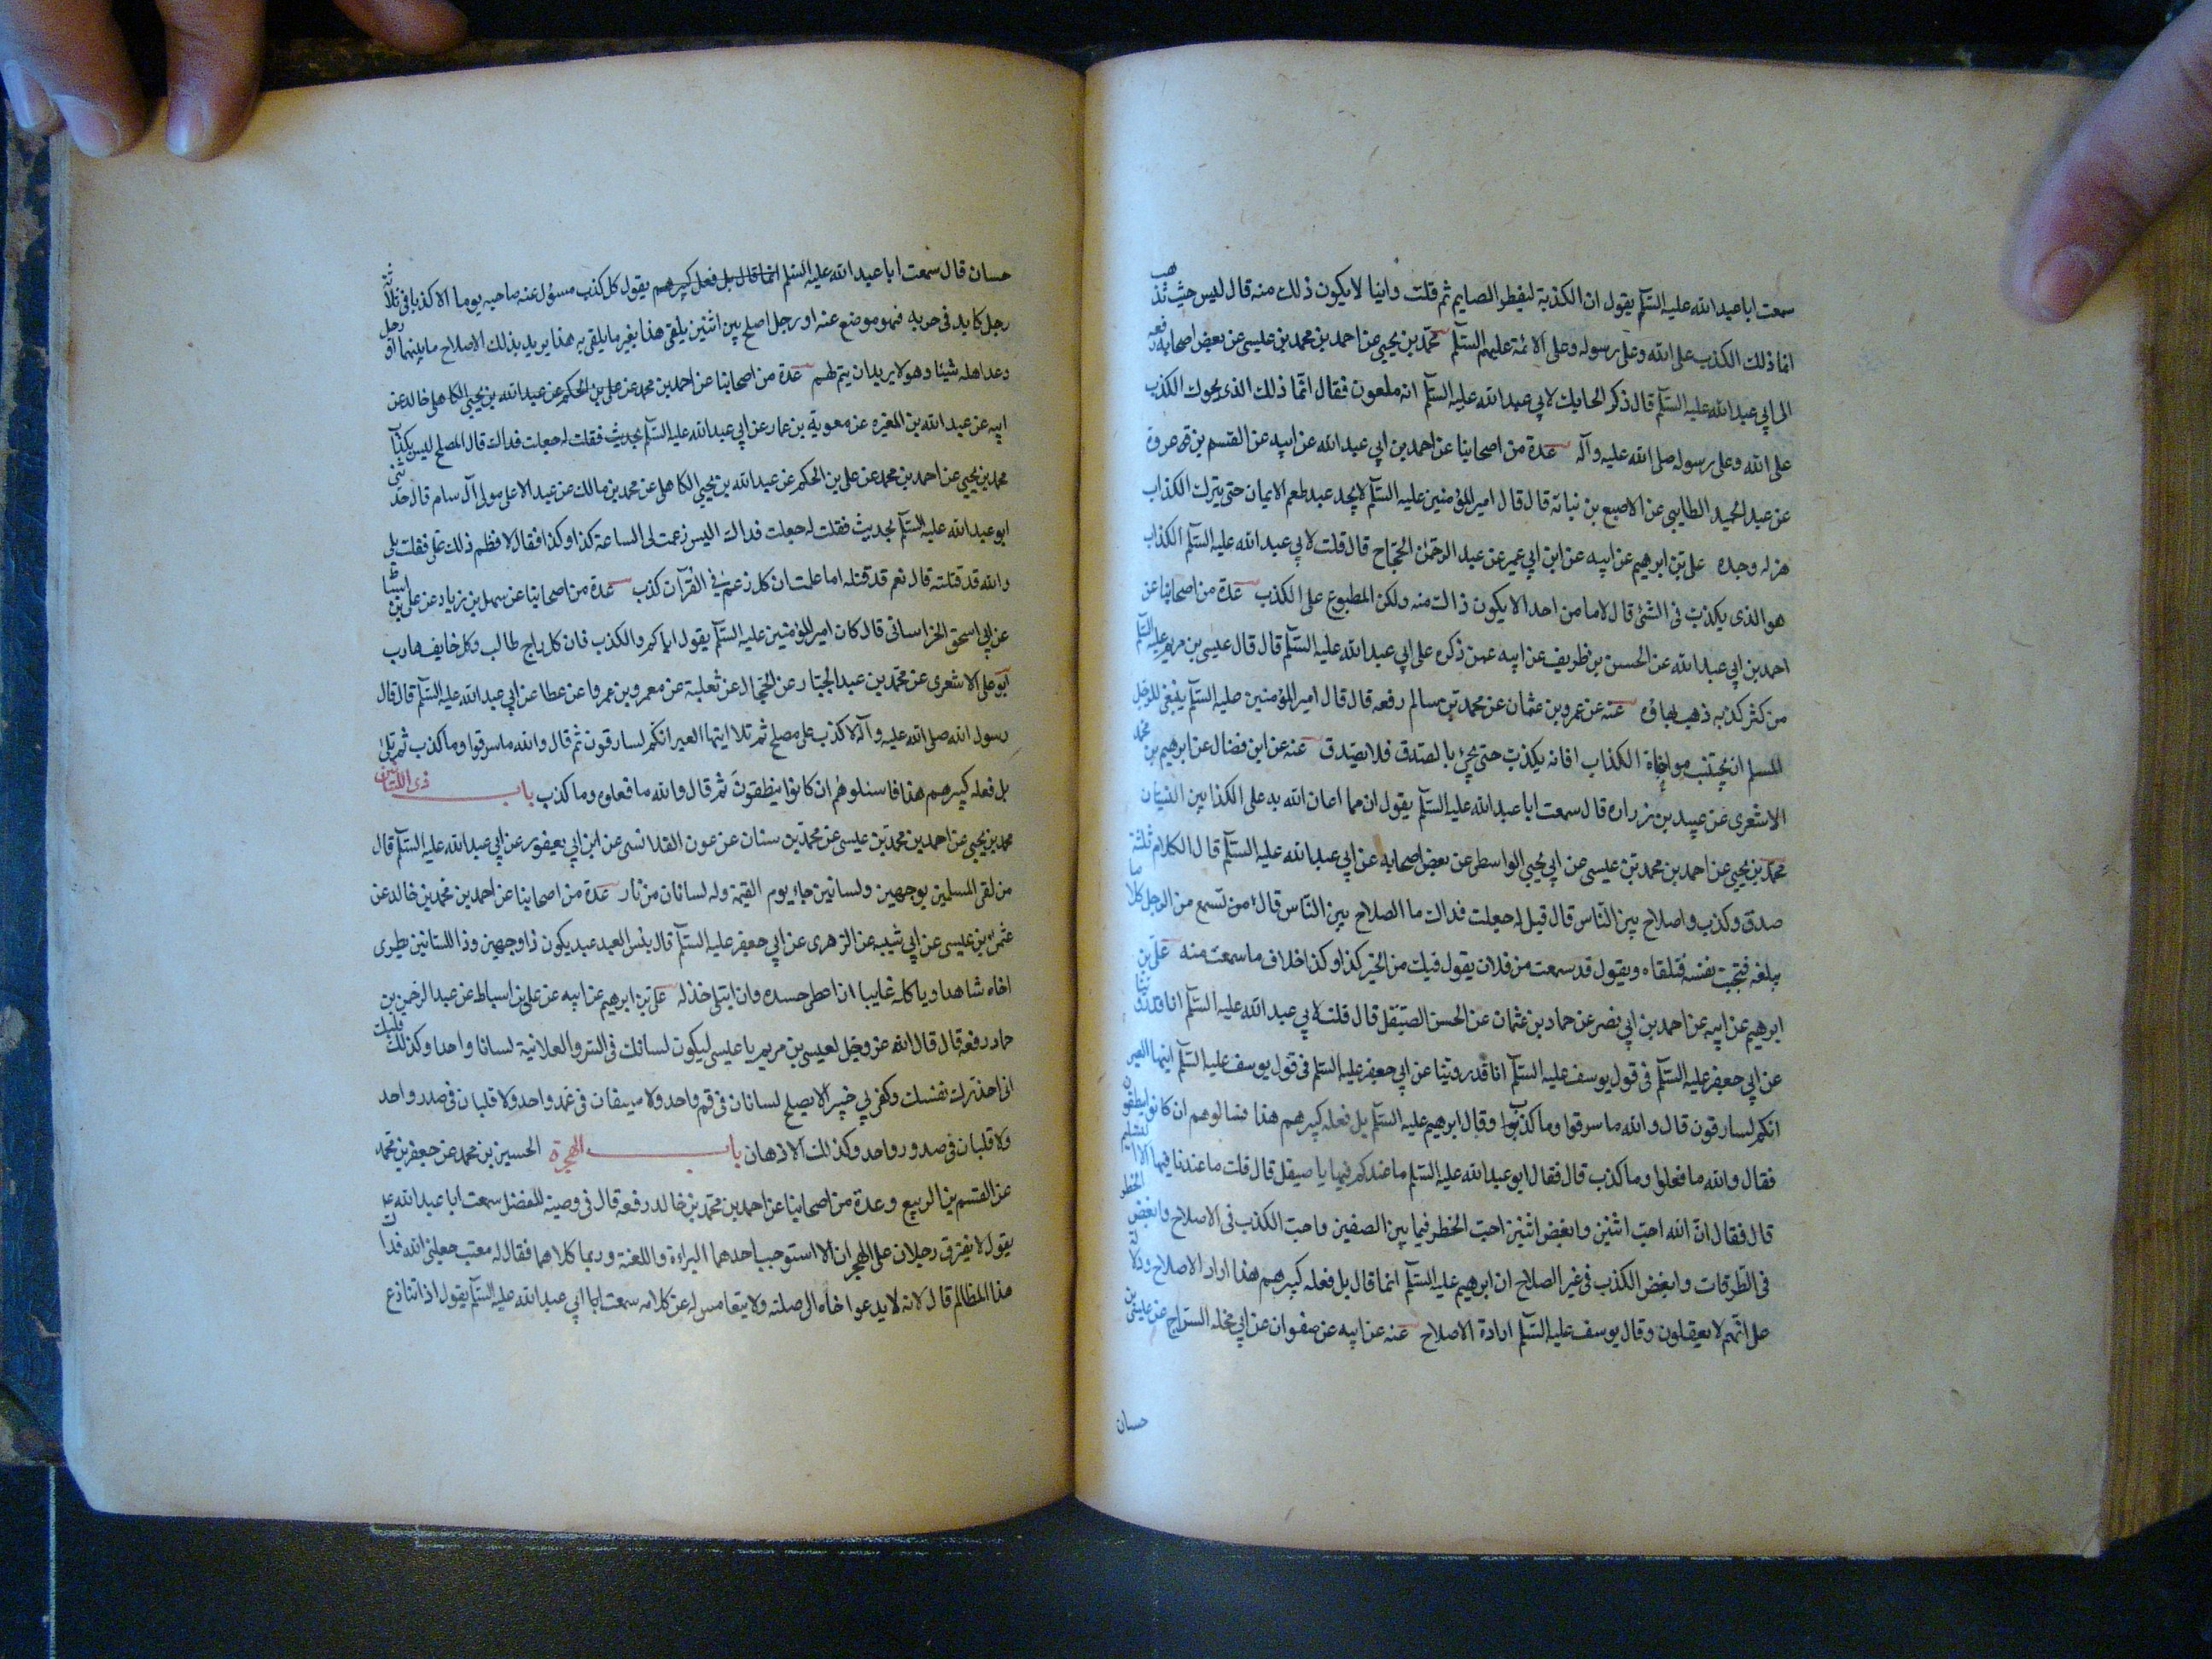 سمعت ابا عبد الله عليه السلم يقول ان الكذبة ليفطر الصايم ثم قلت واينا لا يكون ذلك منه قال ليس حيث تذهب
انما ذلك الكذب على الله وعلى رسوله وعلى الائمة عليهم السلم محمد بن يحيى عن احمد بن محمد بن عيسى عن بعض اصحابه رفعه
الى ابي عبد الله عليه السلم قال ذكر الحايك لابي عبد الله عليه السلم انه ملعون فقال انما ذلك الذى يحوك الكذب
على الله وعلى رسوله صلى الله عليه وآله عدة من اصحابنا عن احمد بن ابي عبد الله عن ابيه عن القسم بن عروة
عن عبد الحميد الطايى عن الاصبع بن نباته قال قال امير المؤمنين عليه السلم لا يجد عبد طعم الايمان حتى يترك الكذاب
هزله وجده على بن ابرهيم عن ابيه عن ابن ابي عمير عن عبد الرحمن الحجاج قال قلت لابي عبد الله عليه السلم الكذاب
هو الذى يكذب فى الشئ قال لا ما من احد الا يكون ذاك منه ولكن المطبوع على الكذب عدة من اصحابنا عن
احمد بن ابي عبد الله عن الحسن بن ظريف عن ابيه عمن ذكره على ابي عبد الله عليه السلم قال قال عيسى بن مريم عليه السلم
من كثر كذبه ذهب بهاؤه عنه عن عمرو بن عثمان عن محمد بن سالم رفعه قال قال امير المؤمنين عليه السلم ينبغى للرجل
المسلم ان يجتنب مواخاة الكذاب افانه يكذب حتى يجئ بالصدق فلا يصدق عنه عن ابن فضال عن ابرهيم بن محمد
الاشعرى عن عبيد بن زراره قال سمعت ابا عبد الله عليه السلم يقول ان مما اعان الله به على الكذابين النسيان
محمد بن يحيى عن احمد بن محمد بن عيسى عن ابي يحيى الواسطى عن بعض اصحابه عن ابي عبد الله عليه السلم قال الكلام ثلثة
صدق وكذب واصلاح بين الناس قال قيل له جعلت فداك ما الصلاح بين الناس قال من تسمع من الرجل كلاما
يبلغه فتخبث نفسه فتلقاه ويقول قد سمعت من فلان يقول فيك من الخير كذا وكذا خلاف ما سمعت منه على بن
ابرهيم عن ابيه عن احمد بن ابي نصر عن حماد بن عثمان عن الحسن الصيقل قال قلت لابي عبد الله عليه السلم انا قد روينا
عن ابي جعفر عليه السلم فى قول يوسف عليه السلم انا قد روينا عن ابي جعفر عليه السلم فى قول يوسف عليه السلم ايتها العير
انكم لسارقون قال والله ما سرقوا وما كذب وقال ابرهيم عليه السلم بل فعله كبيرهم هذا فسالوهم ان كانوا ينطقون
فقال والله ما فعلوا وما كذب قال فقال ابو عبد الله عليه السلم ما عندكم فيها يا صيقل قال قلت ما عندنا فيها الا التسليم
قال فقال ان الله احب اثنين وابغض اثنين احب الخطر فيما بين الصفين واحب الكذب فى الاصلاح وابغض الخطر
فى الطرقات وابغض الكذب فى غير الصلاح ان ابرهيم عليه السلم انما قال بل فعله كبيرهم هذا اراد الاصلاح ودلالة
على انهم لا يعقلون وقال يوسف عليه السلم ارادة الاصلاح عنه عن ابيه عن صفوان عن ابي مخلد السراج عن عيسى بن
حسان
حسان قال سمعت ابا عبد الله عليه السلم انما قال بل فعل كبيرهم يقول كل كذب مسؤل عنه صاحبه يوما الا كذبا فى ثلاثة
رجل كايد فى حربه فهو موضع عنه او رجل اصلح بين اثنين يلقى هذا بغير ما يلقى به هذا يريد بذلك الاصلاح ما بينهما او رجل
وعد اهله شيئا وهو لا يريد ان يتم لهم عدة من اصحابنا عن احمد بن محمد عن على بن الحكم عن عبد الله بن يحيى الكاهلى خالد عن
ابيه عن عبد الله بن المغيره عن معوية بن عمار عن ابي عبد الله عليه السلم بحديث فقلت له جعلت فداك قال المصلح ليس بكذاب
محمد بن يحيى عن احمد بن محمد عن على بن الحكم عن عبد الله بن يحيى الكاهلى عن محمد بن مالك عن عبد الاعلى مولى آل سام قال حدثنى
ابو عبد الله عليه السلم بحديث فقلت له جعلت فداك اليس زعمت لى الساعة كذا وكذا فقال لا فعظم ذلك على فقلت بلى
والله قد قتلته قال نعم قد قتله اما علمت ان كل زعم فى القرآن كذب عدة من اصحابنا عن سهل بن زياد عن على بن اسباط
عن ابي اسحق الخراسانى قال كان امير المؤمنين عليه السلم يقول اياكم والكذب فان كل راج طالب وكل خايف هارب
ابو على الاشعرى عن محمد بن عبد الجبار عن الحجال عن ثعلبة عن معمر وبن عمروا عن عطا عن ابي عبد الله عليه السلم قال قال
رسول الله صلى الله عليه وآله لا كذب على مصلح ثم تلا ايتها العير انكم لسارقون ثم قال والله ما سرقوا وما كذب ثم تلى
بل فعله كبيرهم هذا فاسئلوهم ان كانوا ينطقون ثم قال والله ما فعلوه وما كذب باب ذى اللسانين
محمد بن يحيى عن احمد بن محمد بن عيسى عن محمد بن سنان عن عون القلانسى عن ابن ابي يعفور عن ابي عبد الله عليه السلم قال
من لقى المسلمين بوجهين ولسانين جاء يوم القيمة وله لسانان من نار عدة من اصحابنا عن احمد بن محمد بن خالد عن
عثمن بن عيسى عن ابي شيبه عن الزهرى عن ابي جعفر عليه السلم قال بئس العبد عبد يكون ذا وجهين وذا اللسانين يطرى
اخاه شاهدا وياكله غايبا ان اعطى حسده وان ابتلى خذله على بن ابرهيم عن ابيه عن على بن اسباط عن عبد الرحمن بن
حماد رفعه قال قال الله عز وجل لعيسى بن مريم يا عيسى ليكون لسانك فى السر والعلانية لسانا واحدا وكذلك قلبك
انى احذرك نفسك وكفى بي خبيرا لا يصلح لسانان فى فم واحد ولا سيفان فى غمد واحد ولا قلبان فى صدر واحد
ولا قلبان فى صدور واحد وكذلك الاذهان باب الهجرة الحسين بن محمد عن جعفر بن محمد
عن القسم بن الربيع وعدة من اصحابنا عن احمد بن محمد بن خالد رفعه قال فى وصية للمفضل سمعت ابا عبد الله ع
يقول لا يفترق رجلان على الهجران الا استوجب احدهما البراءة واللعنة وربما كلاهما فقال له معتب جعلنى الله فداك
هذا المظالم قال لانه لا يدعوا خاه الى صلته ولا يتعامس له عن كلامه سمعت ابا ابي عبد الله عليه السلم يقول اذا تنازع